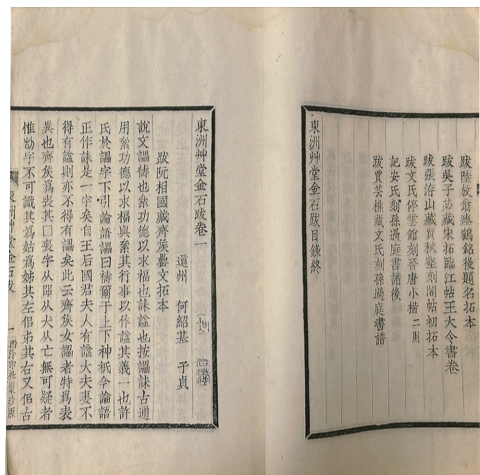 跋陸放翁瘞鶴銘後題名拓本
跋吳子苾藏宋拓臨江帖王大令書卷
跋張洊山藏賈秋壑刻閣帖初拓本
跋文氏停雲館刻晉唐小楷二則
記安氏刻孫過庭書譜後
跋賈芸樵藏文氏刻孫過庭書譜
東洲艸堂金石跋目錄終
東洲艸堂金石跋卷一
道州 何紹基 子貞
跋阮相國藏齊矦罍文拓本
說文讄禱也絫功德以求福也誄諡也按讄誄古通
用絫功德以求福與絫其行事以作諡其義一也許
氏於讄字下引論語讄曰禱爾于上下神祇今論語
正作誄是一字矣自王后國君夫人有諡大夫妻不
得有諡則亦不得有讄矣此云齊矦女讄者特爲表
異也齊矦爲喪其囗喪字从㗊从犬从亡無可疑者
惟字不可識其爲姑爲姊其左侶弟其右又侶古
東洲艸堂金石跋 一 西泠印社聚珍版